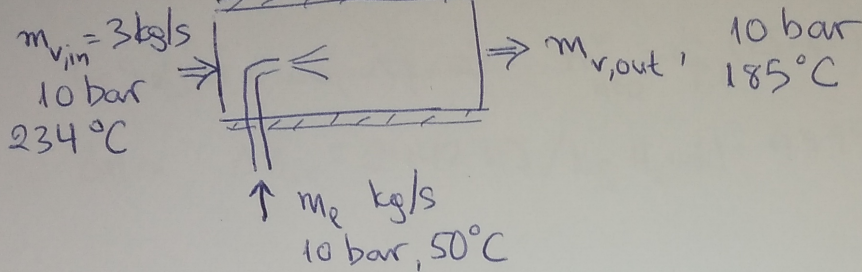 m_v,in = 3 kg/s
10 bar
234 °C
⇒
⇒ m_v,out , 10 bar
185 °C
↑ m_e kg/s
10 bar, 50 °C